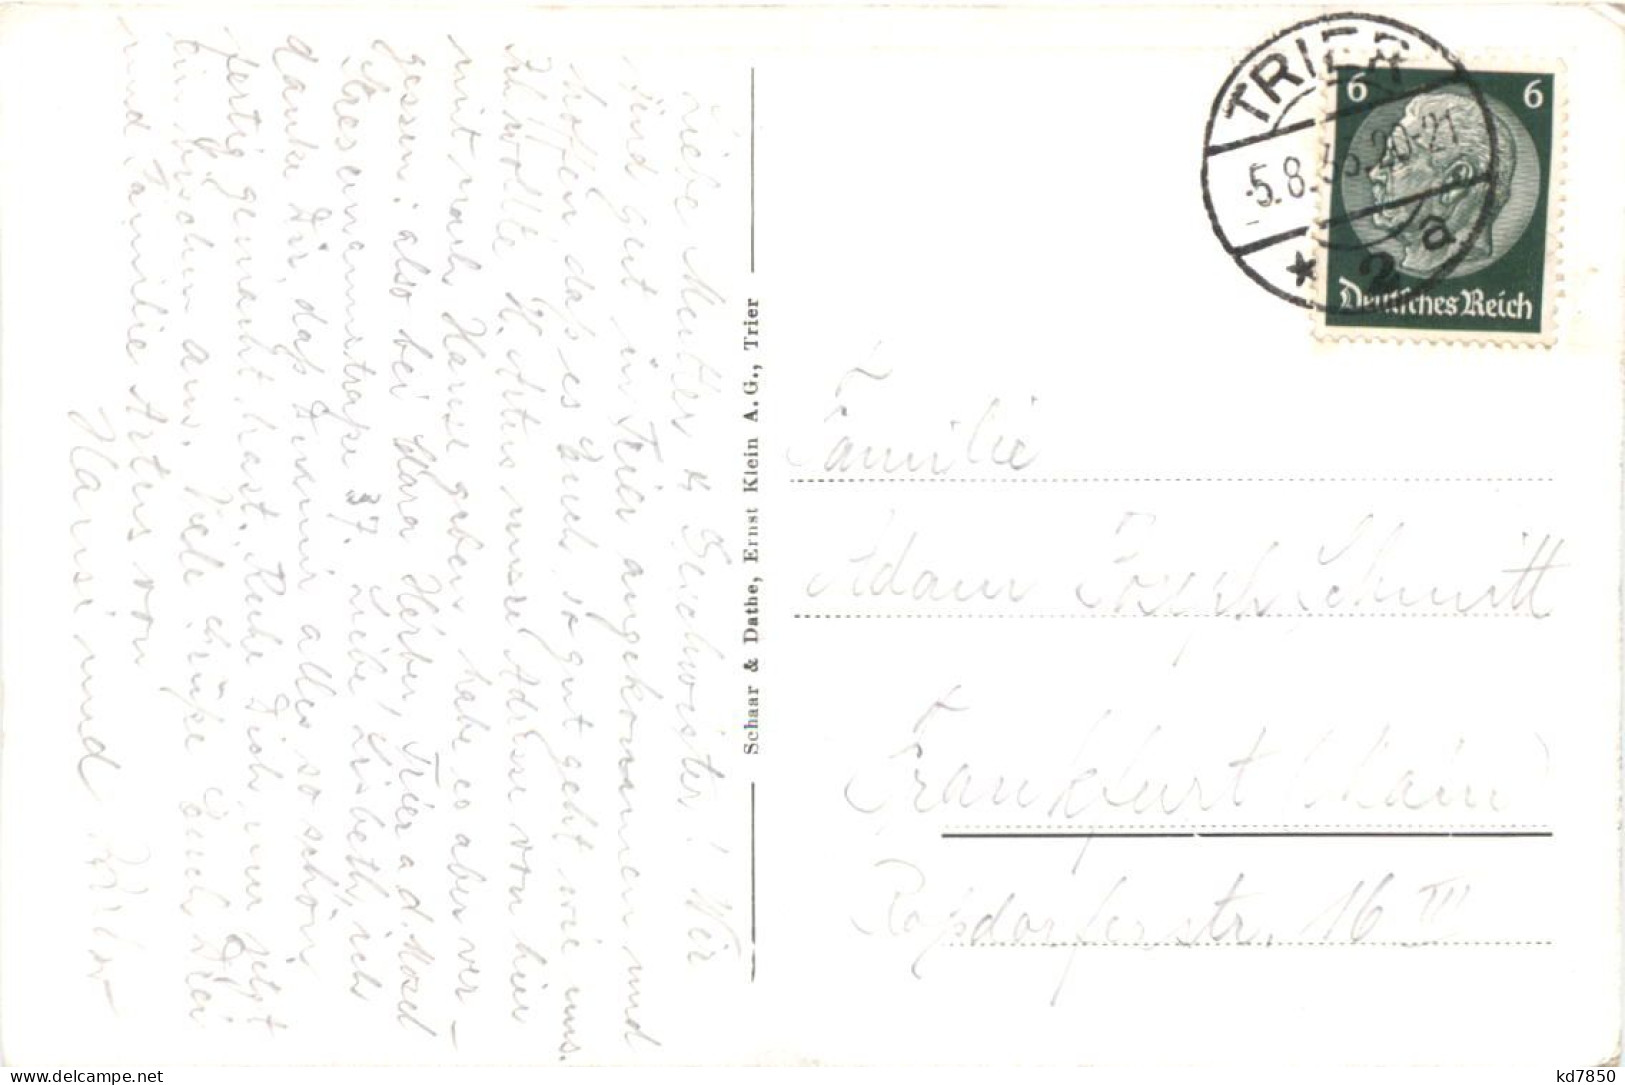 Liebe Mutter u. Geschwister! Wir
sind gut in Trier angekommen und
hoffen, daß es Euch so gut geht wie uns.
Ich wollte H. Artus unsere Adresse von hier
mit nach Hause geben, habe es aber ver-
gessen: also bei Klara Herber, Trier a. d. Mosel
37. Liebe Lisbeth, ich
danke Dir, daß Du mir alles so schön
fertig gemacht hast. Ruhe Dich nur jetzt
ein bischen aus. Viele Grüße Euch Drei
und Familie Artus von
Hansi und
Schaar & Dathe, Ernst Klein A. G., Trier
TRIER
5.8. 20-21
* 2 a
6 6
Deutsches Reich
Familie
Adam Joseph Schmitt
Frankfurt (Main)
Roßdorferstr. 16 III
kd7850